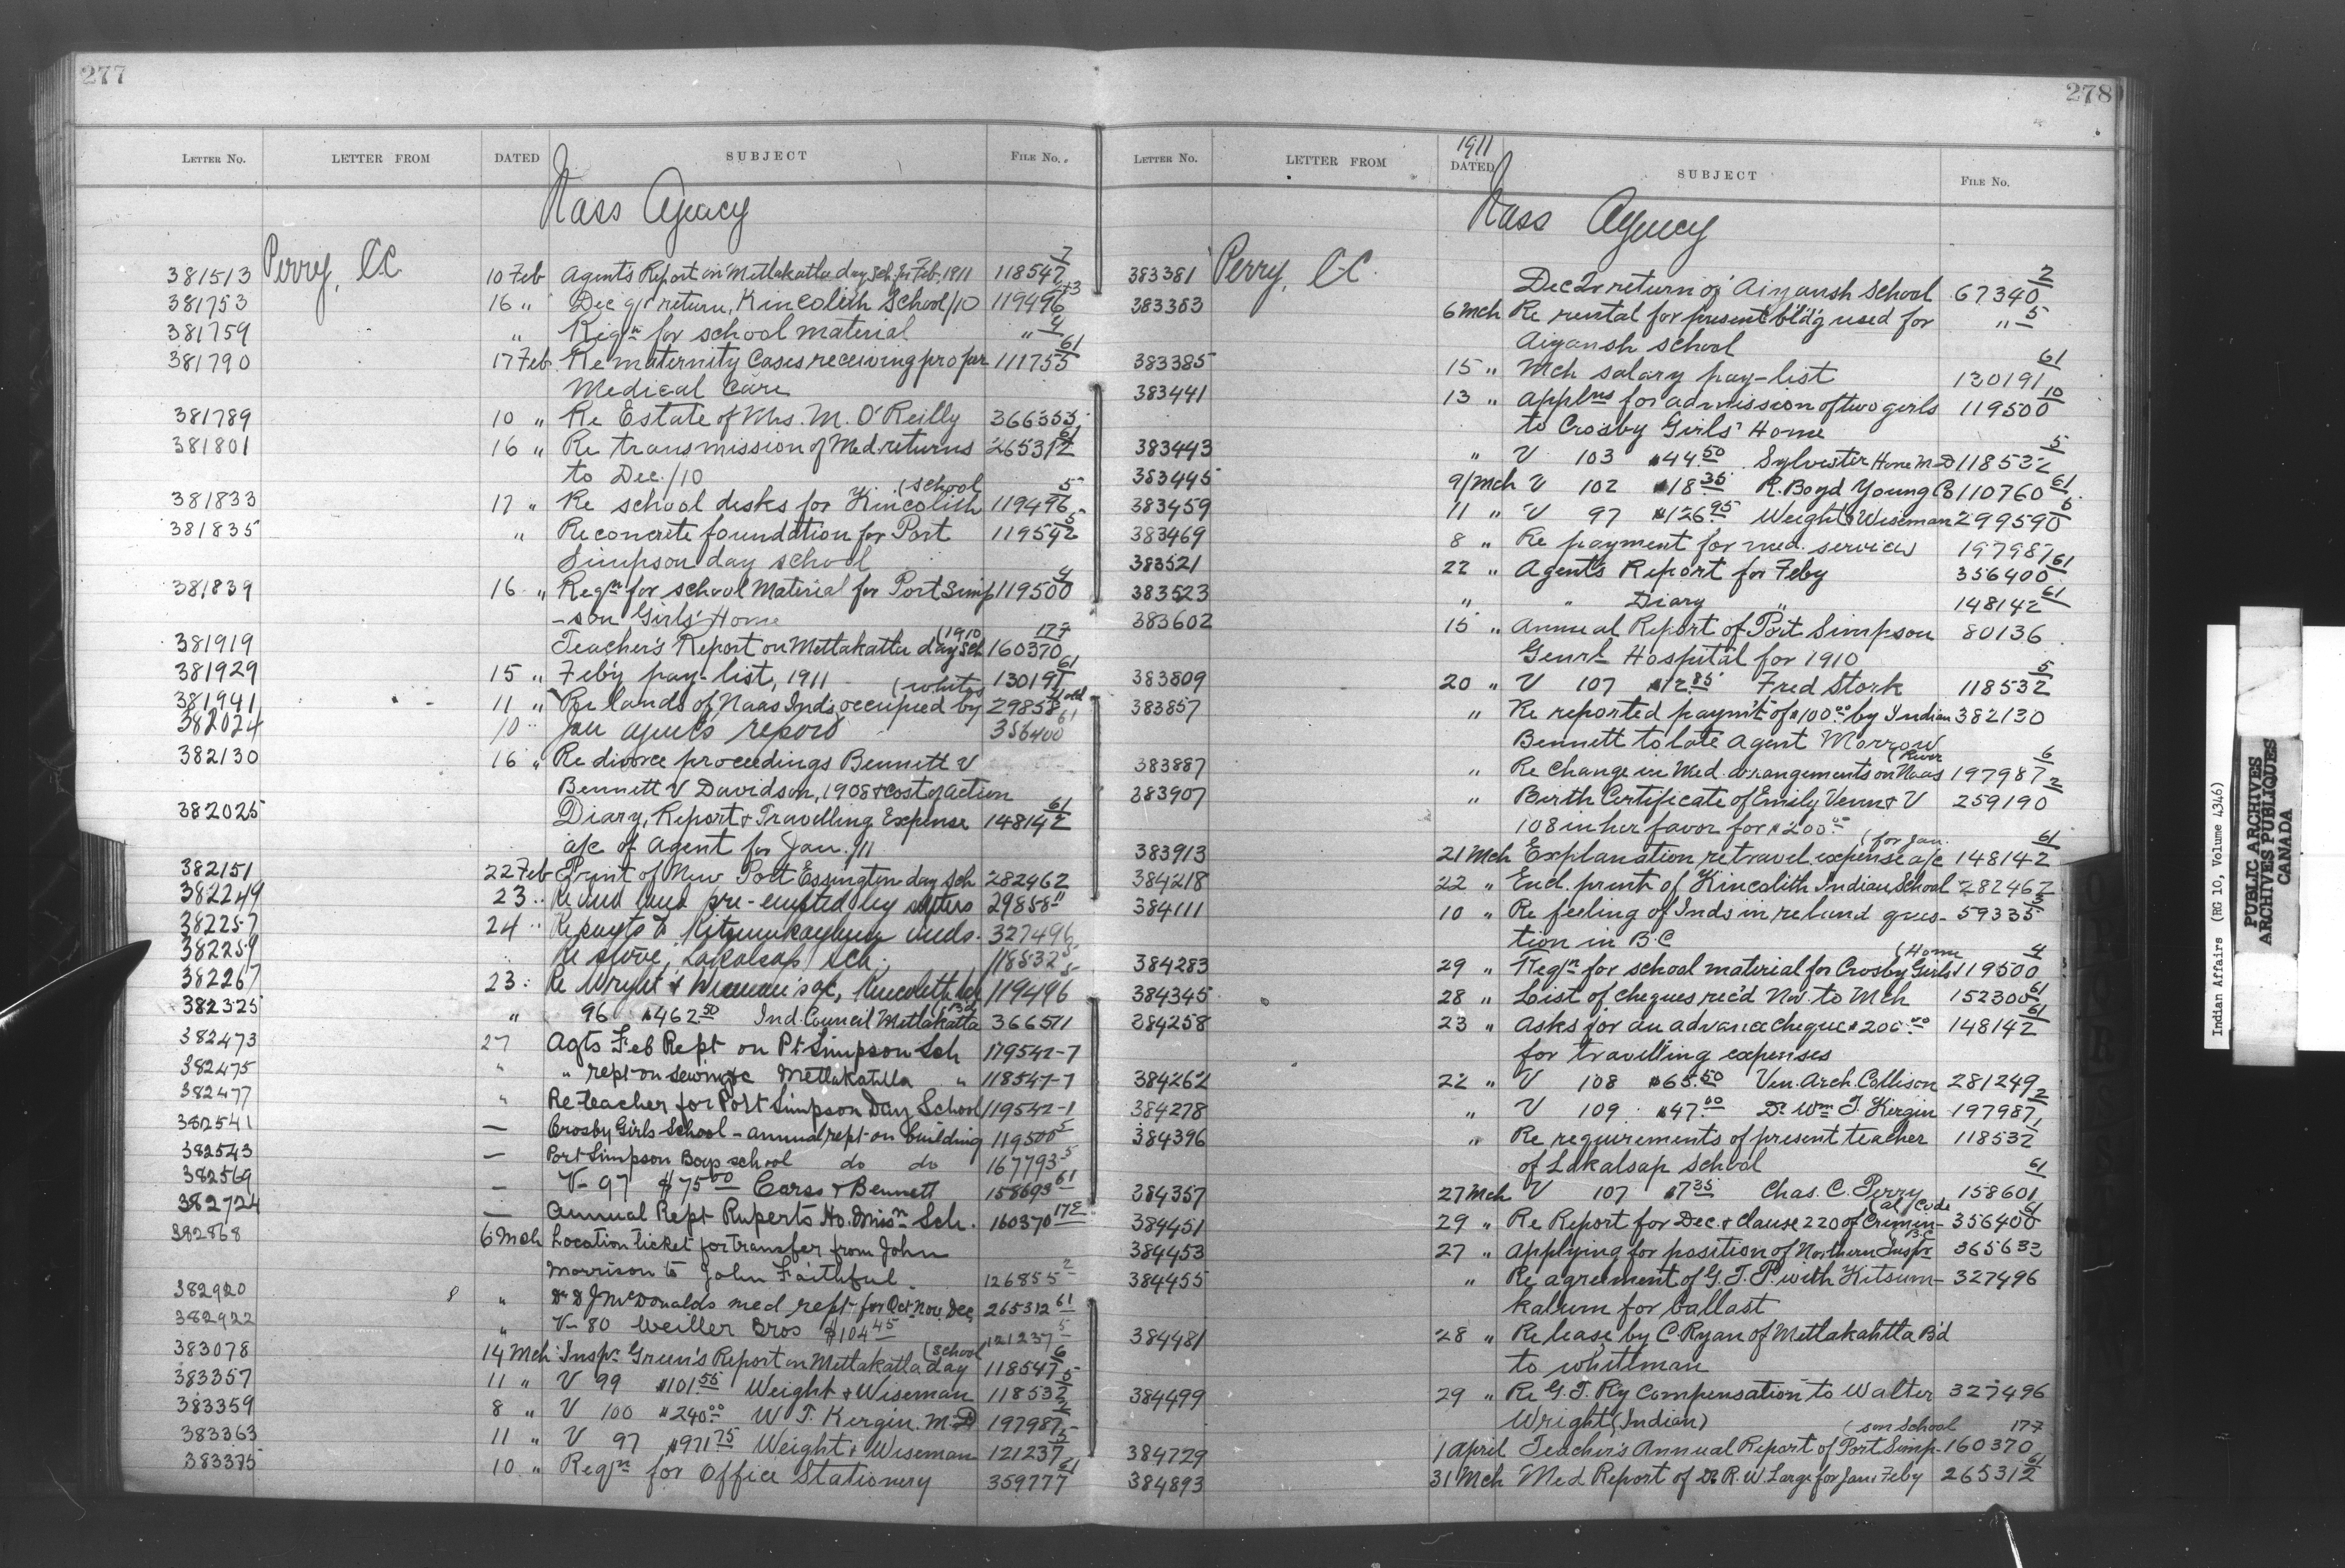 277
LETTER NO. LETTER FROM DATED SUBJECT FILE NO.
Nass Agency
381513 Perry, C.C. 10 Feb Agent's Report on Metlakatla day Sch. for Feb. 1911 118547 7
381753 16 " Dec qr return, Kincolith School/10 119496 13
381759 " Reqn for school material " 4
381790 17 Feb Re maternity Cases receiving proper 111755 61
Medical Care
381789 10 " Re Estate of Mrs. M. O'Reilly 366353
381801 16 " Re transmission of Med. returns 265312 61
to Dec./10
381833 17 " Re school desks for Kincolith (school 119496 5
381835 " Re concrete foundation for Port 119542 5
Simpson day school
381839 16 " Reqn for school Material for Port Simp 119500 4
-son Girls' Home
381919 Teacher's Report on Metlakatla day Sch (1910 160370 177
381929 15 " Feb'y pay-list, 1911 130191 61
381941 11 " Re lands of Naas Inds. occupied by (whites 29858
382024 10 Jan agents report 356400 61
382130 16 " Re divorce proceedings Bennett V
Bennett V Davidson, 1908 & cost of action
382025 Diary, Report & Travelling Expense 148142 61
a/c of Agent for Jan./11
382151 22 Feb Print of New Port Essington day Sch 282462
382249 23 " Re land pre-empted by settlers 29858 11
382257 24 " Re payts to inds. 327496
382259 " Re stove, Lakalsap Sch. 118532 5
382267 23 " Re Wright & Wiseman's a/c, Kincolith 119496 5
382325 " 96 $462.50 Ind. Council Metlakatla 366511
382473 27 Agts Feb Rept on Pt Simpson Sch 119542-7
382475 " " rept on sewing &c Metlakatla " 118547-7
382477 " Re teacher for Port Simpson Day School 119542-1
382541 — Crosby Girls School - annual rept on building 119500 5
382543 — Port Simpson Boys school do do 167793 5
382569 — V- 97 $75.00 Carss & Bennett 158693 61
382724 — Annual Rept Ruperts Ho. Missn Sch. 160370 172
382868 6 Mch Location ticket for transfer from John
Morrison to John Faithful. 126855 2
382920 8 " Dr D J McDonald's med rept for Oct Nov Dec 265312 61
382922 " V- 80 Weiller Bros $104.45 121237 5
383078 14 Mch Inspr Green's Report on Metlakatla day (School 118547 6
383357 11 " V 99 $101.55 Weight & Wiseman 118532 5
383359 8 " V 100 $240.00 W. T. Kergin. M.D 197987 2
383363 11 " V 97 $971.75 Weight & Wiseman 121237 5
383375 10 " Reqn for Office Stationery 359777 21
278
LETTER NO. LETTER FROM 1911 DATED SUBJECT FILE NO.
Nass Agency
383381 Perry, C.C. Dec Qr return of Aiyansh School 67340 2
383383 6 Mch Re rental for present bld'g used for " 5
Aiyansh school
383385 15 " Mch salary pay-list 130191 61
383441 13 " applns for admission of two girls 119500 10
to Crosby Girls' Home
383443 " V 103 $44.50 Sylvester Horne M.D 118532 5
383445 9/Mch V 102 $18.35 R. Boyd Young Co 110760 61
383459 11 " V 97 $126.95 Weight & Wiseman 299590 6
383469 8 " Re payment for med. services 197987
383521 22 " Agent's Report for Feby 356400 61
383523 " " Diary " 148142 61
383602 15 " Annual Report of Port Simpson 80136
Genrl Hospital for 1910
383809 20 " V 107 $12.85 Fred Stork 118532 5
383857 " Re reported paym't of $100.00 by Indian 382130
Bennett to late Agent Morrow
383887 " Re change in Med. arrangements on Naas (River 197987 6
383907 " Birth Certificate of Emily Venn & V 259190 2
108 in her favor for $200.00
383913 21 Mch Explanation re travel. expense a/c (for Jan. 148142 61
384218 22 " Encl. print of Kincolith Indian School 282462
384111 10 " Re feeling of Inds in re land ques- 59335 3
tion in B.C
384283 29 " Reqn for school material for Crosby Girls (Home 119500 4
384345 28 " List of cheques rec'd Nov. to Mch 152300 61
384258 23 " Asks for an advance cheque $200.00 148142 61
for travelling expenses
384262 22 " V 108 $65.50 Ven. Arch. Collison 281249
384278 " V 109 $47.00 Dr. Wm T. Kergin 197987 2
384396 " Re requirements of present teacher 118532 1
of Lakalsap School
384357 27 Mch V 107 $7.35 Chas. C. Perry 158601 61
384451 29 " Re Report for Dec. & Clause 220 of Crimin- (al Code 356400 61
384453 27 " Applying for position of Northern Inspr (B.C 365632
384455 " Re agreement of G.T.P. with Kitsum- 327496
kalum for ballast
384481 28 " Re lease by C. Ryan of Metlakahtla B'd
to whiteman
384499 29 " Re G.T. Ry Compensation to Walter 327496
Wright (Indian)
384729 1 April Teacher's Annual Report of Port Simp- (son School 160370 177
384893 31 Mch Med Report of Dr. R. W. Large for Jan & Feby 265312 61
Indian Affairs (RG 10, Volume 4346)
PUBLIC ARCHIVES
ARCHIVES PUBLIQUES
CANADA